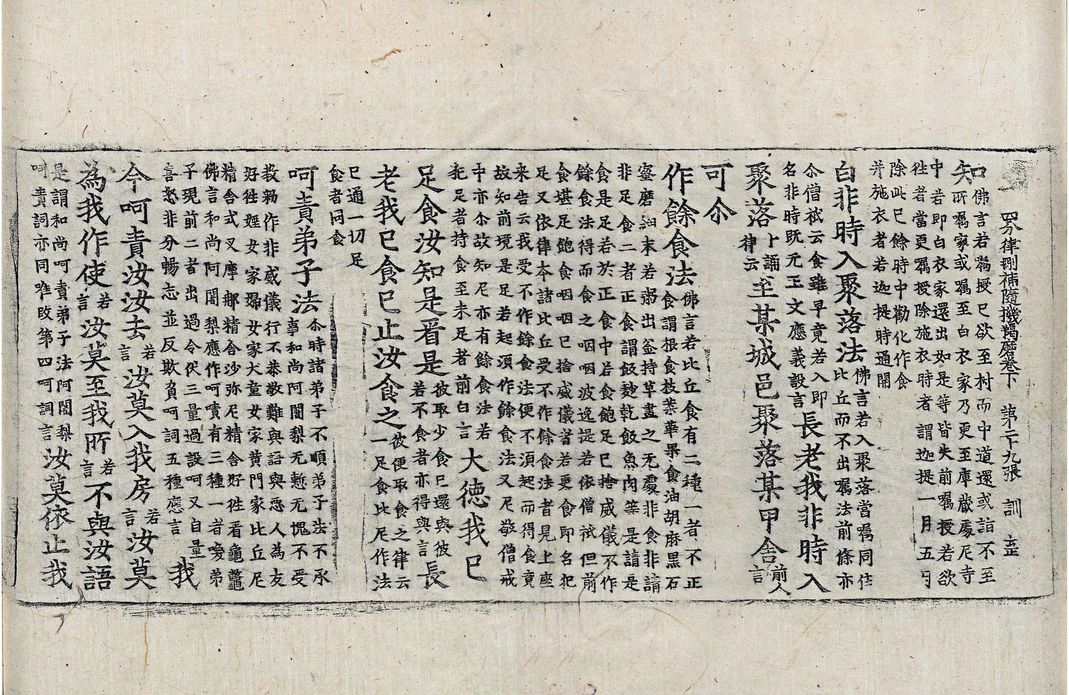 四分律刪補隨機羯磨卷下 第二十九張 訓
知佛言若囑授已欲至村而中道還或詣不至所囑家或囑至白衣家乃更至庫藏處尼寺
中若即白衣家還出如是等皆失前囑授若欲徃者當更囑授除施衣時者謂迦提一月五月
除此已餘時中勸化作食并施衣者若迦提時通開
白非時入聚落法佛言若入聚落當囑同住比丘而不出囑法前條亦
尒僧祇云食雖早竟若入即名非時既无正文應義設言長老我非時入
聚落卜誦律云至某城邑聚落某甲舍前人言
可尒
作餘食法佛言若比丘食有二種一者不正食謂根食枝葉華果食油胡麻黑石
蜜磨細末若粥出釜持草畫之无處非食非請非足食二者正食謂飯麨乾飯魚肉等是請是
食是足若於正食中若食飽足已捨威儀不作餘食法得而食之咽咽波逸提若依僧祇但前
食堪足飽食咽咽已捨威儀者若更食即名犯足又依律本諸比丘受不作餘食法者見上座
来告云我不作餘食法便不湏起而得食竟故知前境是足若起湏作餘食法又尼敬僧戒
中亦尒故知尼亦有餘食法若犯足者持食至未足者前白言大徳我已
足食汝知是看是彼取少食已還與彼若不食者亦得與言長
老我已食已止汝食之彼便取食之律云一足食比尼作法
已通一切足食者同食
呵責弟子法尒時諸弟子不順弟子法不承事和尚阿闍梨无慙无愧不受
教勑作非威儀行不恭敬難與語與惡人為友好徃婬女家婦女家大童女家黄門家比丘尼
精舍式叉摩那精舍沙弥尼精舍好徃看龜鼈佛言和尚阿闍梨應作呵責有三種一者愛弟
子現前二者出過令伏三量過設呵又自量喜怒非分暢志並反欺負呵詞五種應言我
今呵責汝汝去若言汝莫入我房若言汝莫
為我作使若言汝莫至我所若言不與汝語
是謂和尚呵責弟子法阿闍梨呵責詞亦同唯改第四呵詞言汝莫依止我